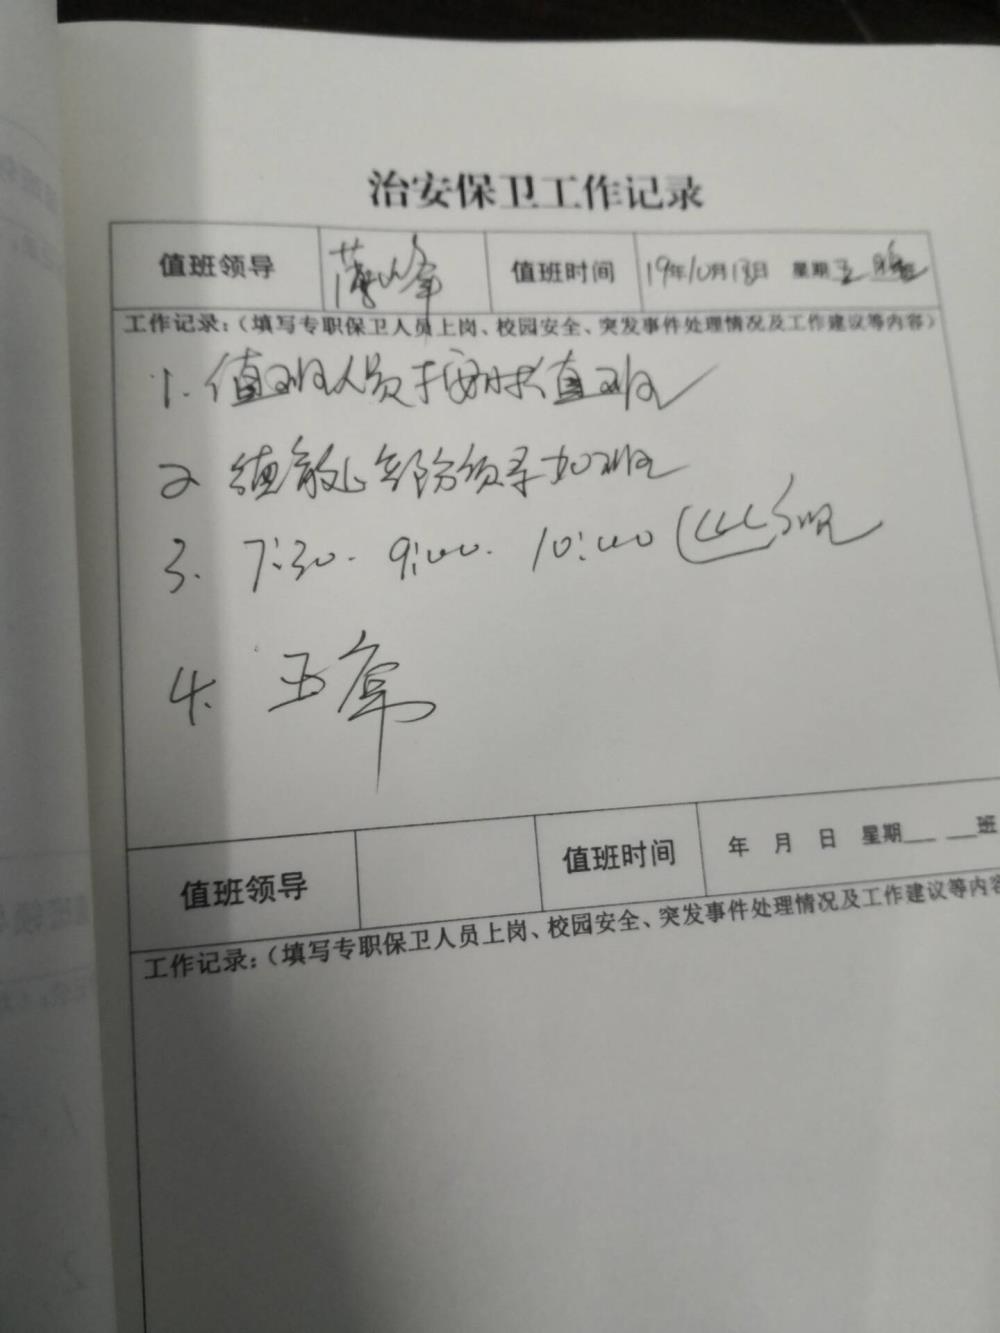 治安保卫工作记录
值班领导 薄山峰 值班时间 19年10月18日 星期五 晚班
工作记录：（填写专职保卫人员上岗、校园安全、突发事件处理情况及工作建议等内容）
1. 值班人员按时值班
2 德 处 部分领导加班
3. 7:30. 9:00. 10:00 巡视
4.
值班领导 值班时间 年 月 日 星期___ ___班
工作记录：（填写专职保卫人员上岗、校园安全、突发事件处理情况及工作建议等内容